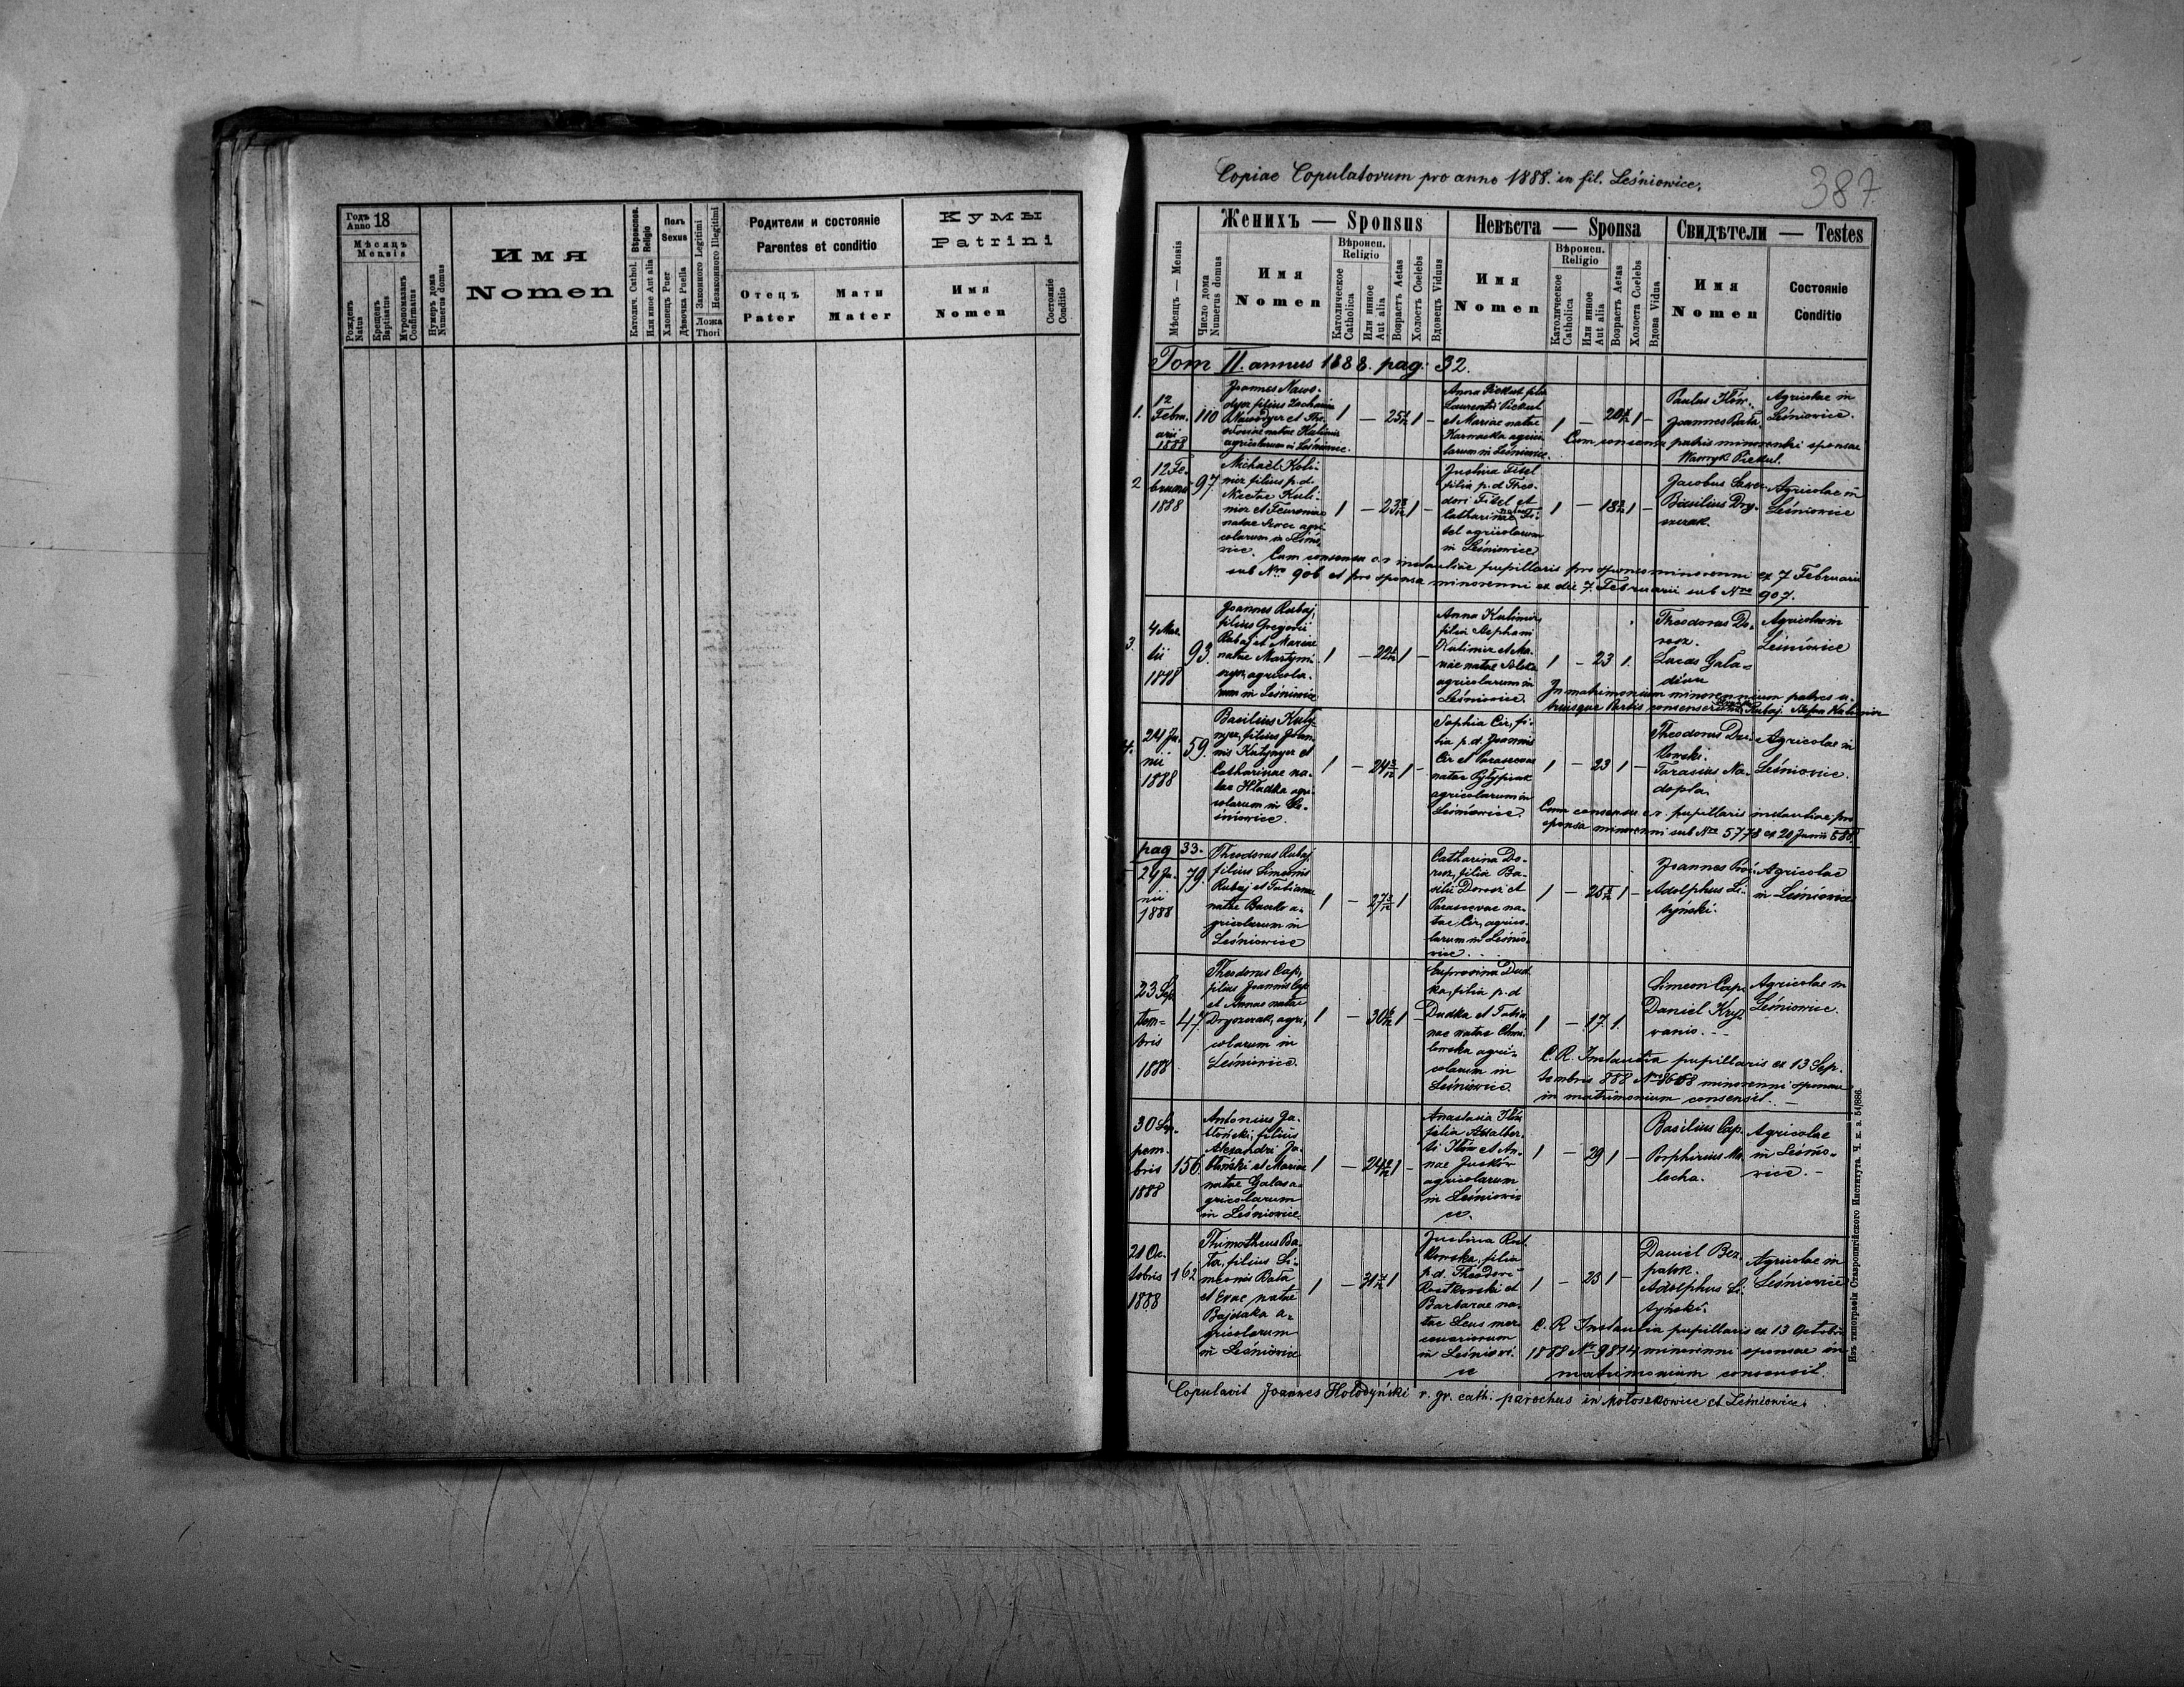 Годъ
Anno 18
Мѣсяцъ
Mensis
Рожденъ
Natus
Крещенъ
Baptisatus
Мѵропомазанъ
Confirmatus
Нумеръ дома
Numerus domus
Имя
Nomen
Вѣроиспов.
Religio
Католич. Cathol.
Или иное Aut alia
Полъ
Sexus
Хлопецъ Puer
Дѣвочка Puella
Законного Legitimi
Незаконного Illegitimi
Ложа
Thori
Родители и состояніе
Parentes et conditio
Отецъ
Pater
Мати
Mater
Кумы
Patrini
Имя
Nomen
Состояніе
Conditio
Copiae Copulatorum pro anno 1888. in fil. Leśniowice.
387
Мѣсяцъ — Mensis
Число дома
Numerus domus
Женихъ — Sponsus
Имя
Nomen
Вѣроисп.
Religio
Католическое
Catholica
Или инное
Aut alia
Возрастъ Aetas
Холостъ Coelebs
Вдовецъ Viduus
Невѣста — Sponsa
Имя
Nomen
Вѣроисп.
Religio
Католическое
Catholica
Или инное
Aut alia
Возрастъ Aetas
Холоста Coelebs
Вдова Vidua
Свидѣтели — Testes
Имя
Nomen
Состояніе
Conditio
Tom II. annus 1888. pag. 32.
1.
12
Febru-
arii
1888
110
Joannes Nawo-
filius Zachariae
agricolarum in Leśniowice.
1 — 25 1 —
Anna Piekut filia
Laurentii Piekut
et Mariae natae
Karnaska agrico-
larum in Leśniowice.
1 — 20 1 —
Paulus
Joannes Bała
Agricolae in
Leśniowice.
Cum consensu patris minorenni sponsae
Wawryk Piekut.
2
12 Fe-
bruarii
1888
97.
Michaël Kuli-
mir filius p.d.
Kuli-
mir et
natae agri-
colarum in Leśnio-
wice.
1 — 23 1 —
Justina Fitel
filia p.d. Theo-
dori Fitel et
Catharinae natae Fi-
tel agricolarum
in Leśniowice
1 — 18 1 —
Jacobus
Basilius Dry-
Agricolae in
Leśniowice
Cum consensu c. r. instantiae pupillaris pro sponso minorenni ex 7 Februarii
sub Nro 906 et pro sponsa minorenni ex die 7. Februarii sub Nro 907.
3.
4 Mar-
tii
1888
93.
Joannes Rubaj,
filius Gregorii
Rubaj et Mariae
natae Martyni-
agricola-
rum in Leśniowice
1 — 22 1 —
Anna Kulimir,
filia Stephani
Kulimir et Ma-
riae natae
agricolarum in
Leśniowice.
1 — 23 1.
Theodorus Do-
rosz.
Lucas Gała-
Agricolae in
Leśniowice
In matrimonium minorennium patres u-
triusque Partis consenserunt Rubaj. Stefan Kulimir
4.
24 Ju-
nii
1888
59.
Basilius Kuly-
filius Joan-
nis et
Catharinae na-
tae Hładka agri-
colarum in Le-
śniowice.
1 — 24 1 —
Sophia Cir, fi-
lia p.d. Joannis
Cir et Parascevae
natae Pylypczak
agricolarum in
Leśniowice.
1 — 23 1 —
Theodorus
Tarasius Na-
dopta.
Agricolae in
Leśniowice.
Cum consensu c. r. pupillaris instantiae pro
sponsa minorenni sub Nro 5778 ex 20 Junii 888.
pag 33.
24 Ju-
nii
1888
79.
Theodorus Rubaj
filius Simeonis
Rubaj et Tatianae
natae a-
gricolarum in
Leśniowice
1 — 27 1
Catharina Do-
rosz, filia Ba-
silii Dorosz et
Parascevae na-
tae Cir, agrico-
larum in Leśnio-
wice.
1 — 25 1 —
Joannes
Adolphus Li-
tyński.
Agricolae
in Leśniowice
23 Sep-
tem-
bris
1888
47
Theodorus Cap,
filius Joannis Cap
et Annae natae
Dryszczak, agri-
colarum in
Leśniowice.
1 — 30 1 —
Euprosina Dud-
ka, filia p.d
Dudka et Tatia-
nae natae Chmi-
lowska agri-
colarum in
Leśniowice.
1 — 17. 1.
Simeon Cap.
Daniel Kry-
wanio. —
Agricolae in
Leśniowice.
C. R. Instantia pupillaris ex 13 Sep-
tembris 888 Nro minorenni sponsae
in matrimonium consensit. —
30 Sep-
tem-
bris
1888
156.
Antonius Ja-
błoński, filius
Alexandri Ja-
błoński et Mariae
natae Galas a-
gricolarum
in Leśniowice.
1 — 24 1 —
Anastasia
filia Adalber-
ti et An-
nae
agricolarum
in Leśniowi-
ce.
1 — 29 1 —
Basilius Cap.
Porphirius Ma-
locha.
Agricolae
in Leśnio-
wice. —
21 Oc-
tobris
1888
162
Thimotheus Ba-
ła, filius Si-
meonis Bała
et Evae natae
Bajdaka a-
gricolarum
in Leśniowice
1 — 31 1
Justina Rut-
kowska, filia
p.d. Theodori
Rutkowski et
Barbarae na-
tae Leus mer-
cenariorum
in Leśniowi-
ce
1 — 23 1 —
Daniel Bez-
palok.
Adolphus Li-
tyński.
Agricolae in
Leśniowice
C. R. Instantia pupillaris ex 13 Octobris
1888 Nr 9814 minorenni sponsae in
matrimonium consensit.
Copulavit Joannes Hołodyński r. gr. cath. parochus in Mołoszkowice et Leśniowice.
Изъ типографіи Ставропигійского Института. Ч. к. з. 54/886.